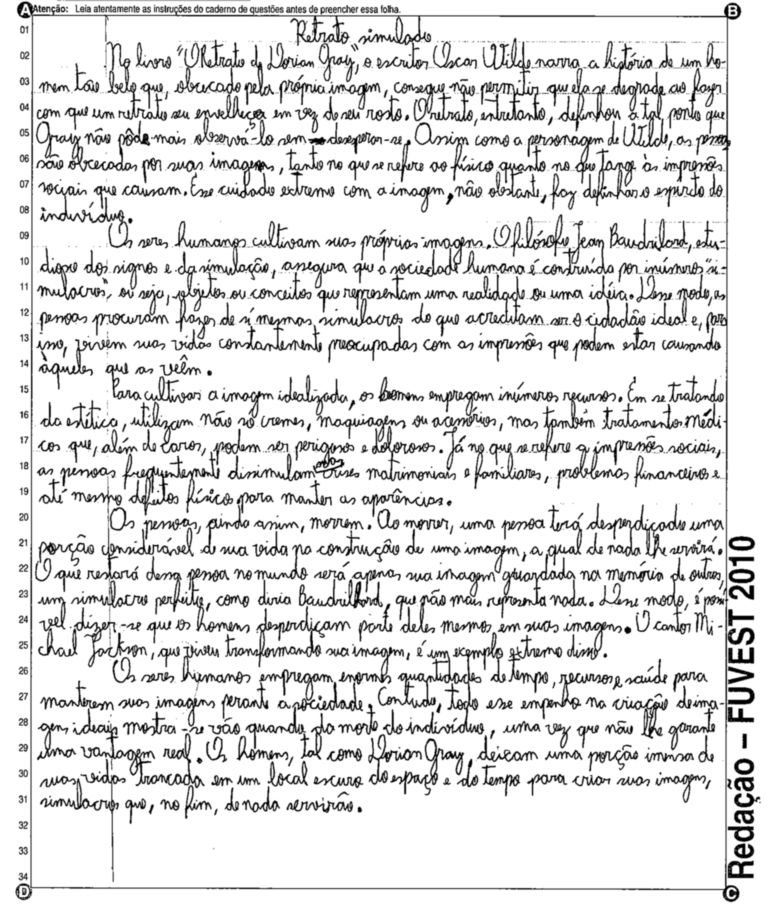 Atenção: Leia atentamente as instruções do caderno de questões antes de preencher essa folha.
Retrato simulado
No livro "O Retrato de Dorian Gray", o escritor Oscar Wilde narra a história de um ho-
mem tão belo que, obcecado pela própria imagem, consegue não permitir que ela se degrade ao fazer
com que um retrato seu envelheça em vez de seu rosto. O retrato, entretanto, definhou a tal ponto que
Gray não pôde mais observá-lo sem desesperar-se. Assim como a personagem de Wilde, as pessoas
são obcecadas por suas imagens, tanto no que se refere ao físico quanto no que tange às impressões
sociais que causam. Esse cuidado extremo com a imagem, não obstante, faz definhar o espírito do
indivíduo.
Os seres humanos cultivam suas próprias imagens. O filósofo Jean Baudrilard, estu-
dioso dos signos e da simulação, assegura que a sociedade humana é construída por inúmeros "si-
mulacros", ou seja, objetos ou conceitos que representam uma realidade ou uma idéia. Desse modo, as
pessoas procuram fazer de si mesmas simulacros do que acreditam ser o cidadão ideal e, para
isso, vivem suas vidas constantemente preocupadas com as impressões que podem estar causando
àqueles que as vêem.
Para cultivar a imagem idealizada, os homens empregam inúmeros recursos. Em se tratando
da estética, utilizam não só cremes, maquiagens ou acessórios, mas também tratamentos médi-
cos que, além de caros, podem ser perigosos e dolorosos. Já no que se refere a impressões sociais,
as pessoas frequentemente dissimulam crises matrimoniais e familiares, problemas financeiros e
até mesmo defeitos físicos para manter as aparências.
As pessoas, ainda assim, morrem. Ao morrer, uma pessoa terá desperdiçado uma
porção considerável de sua vida na construção de uma imagem, a qual de nada lhe servirá.
O que restará dessa pessoa no mundo será apenas sua imagem guardada na memória de outros,
um simulacro perfeito, como diria Baudrillard, que não mais representa nada. Desse modo, é possí-
vel dizer-se que os homens desperdiçam parte deles mesmos em suas imagens. O cantor Mi-
chael Jackson, que viveu transformando sua imagem, é um exemplo extremo disso.
Os seres humanos empregam enormes quantidades de tempo, recursos e saúde para
manterem suas imagens perante a sociedade. Contudo, todo esse empenho na criação de ima-
gens ideais mostra-se vão quando da morte do indivíduo, uma vez que não lhe garante
uma vantagem real. Os homens, tal como Dorian Gray, deixam uma porção imensa de
suas vidas trancada em um local escuro do espaço e do tempo para criar suas imagens,
simulacros que, no fim, de nada servirão.
Redação – FUVEST 2010